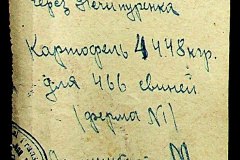 через Нечипуренка
Картофель 4448 кгр.
для 466 свиней
(ферма №1)